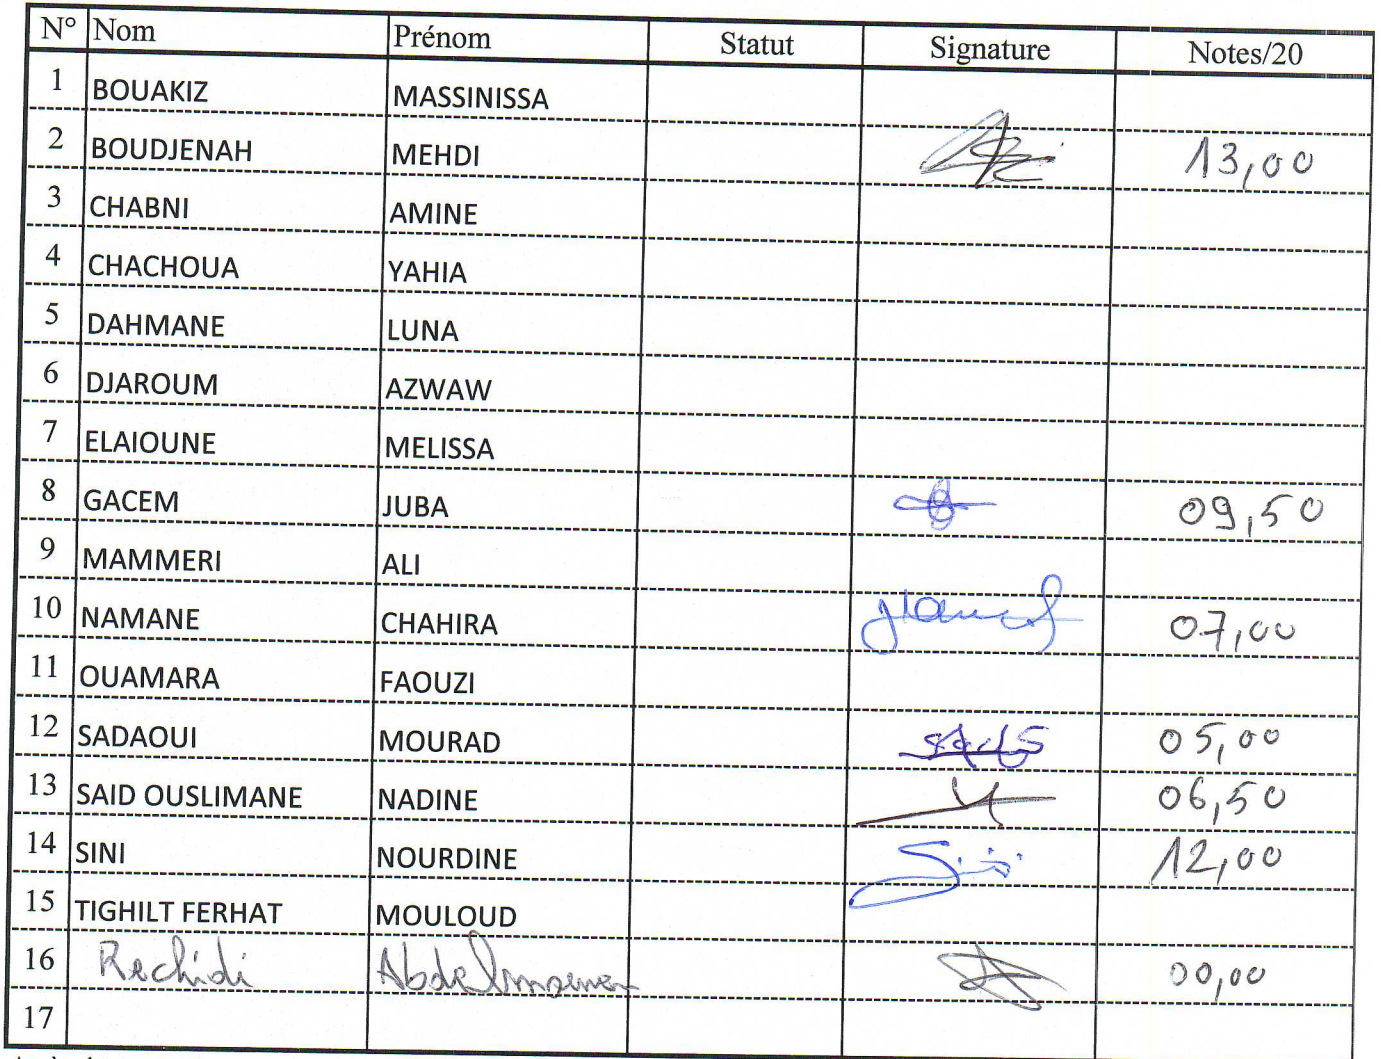 N° Nom Prénom Statut Signature Notes/20
1 BOUAKIZ MASSINISSA
2 BOUDJENAH MEHDI 13,00
3 CHABNI AMINE
4 CHACHOUA YAHIA
5 DAHMANE LUNA
6 DJAROUM AZWAW
7 ELAIOUNE MELISSA
8 GACEM JUBA 09,50
9 MAMMERI ALI
10 NAMANE CHAHIRA 07,00
11 OUAMARA FAOUZI
12 SADAOUI MOURAD 05,00
13 SAID OUSLIMANE NADINE 06,50
14 SINI NOURDINE Sini 12,00
15 TIGHILT FERHAT MOULOUD
16 Rechidi Abdelmoumen 00,00
17